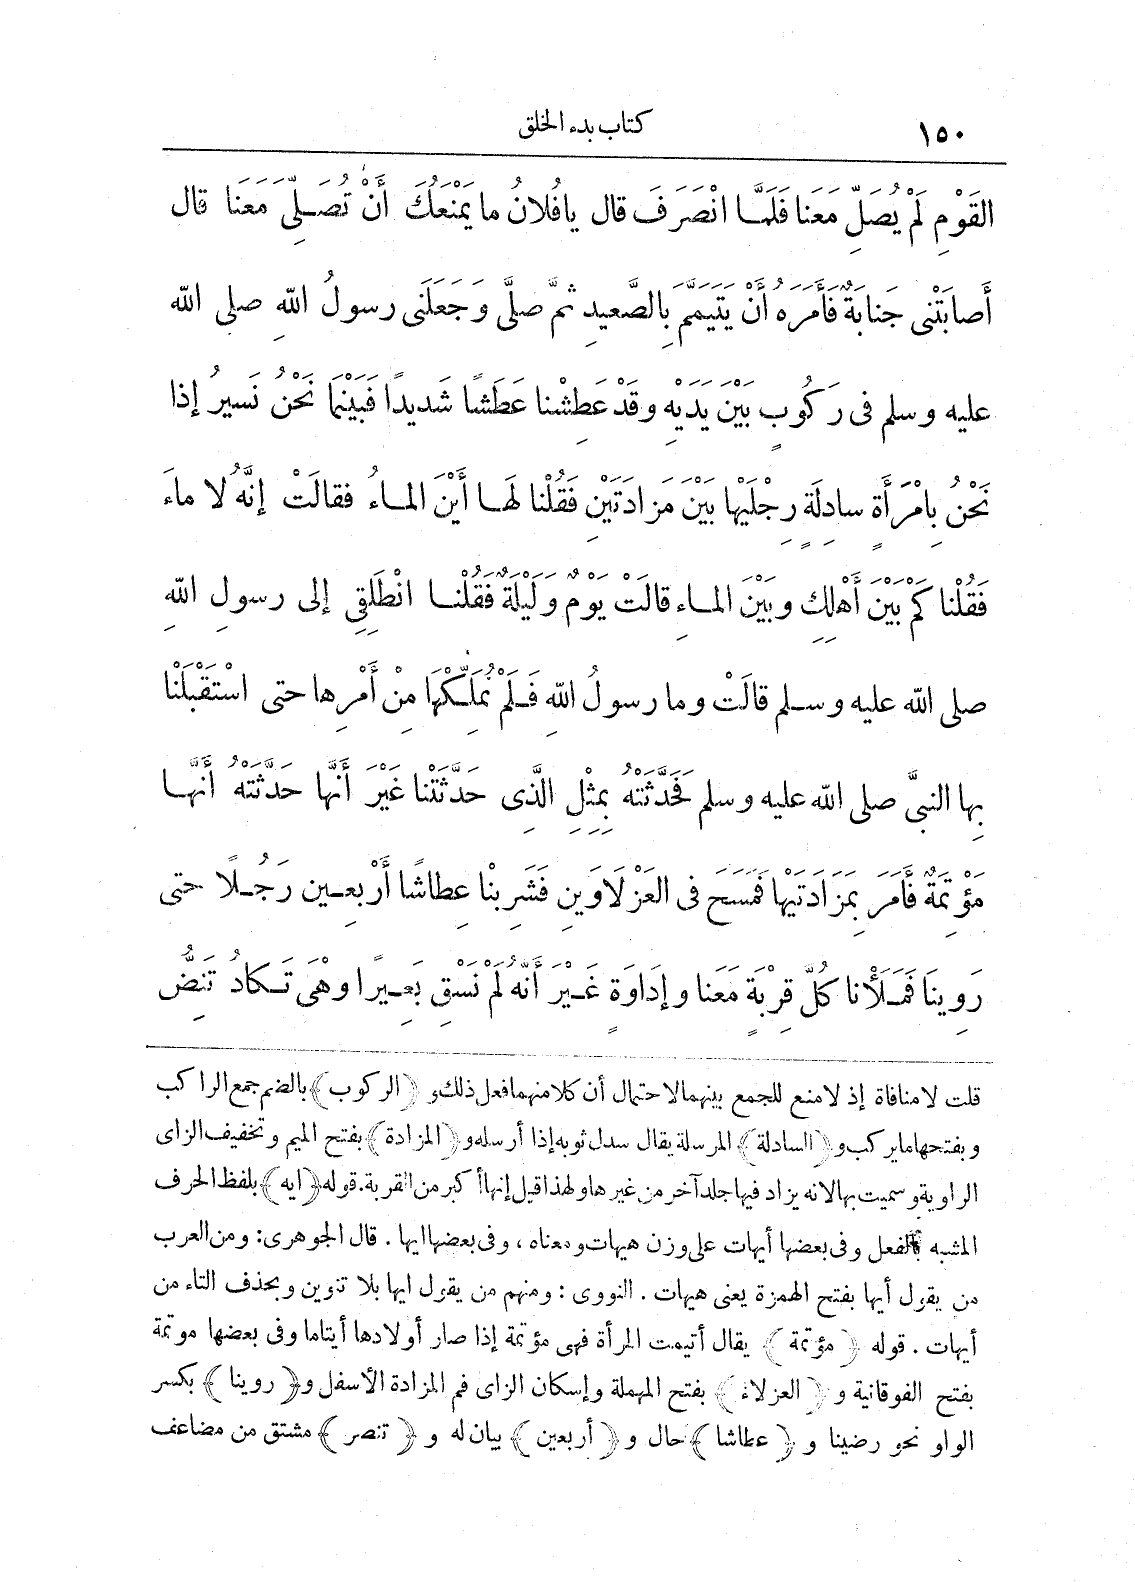 ١٥٠ كتاب بدء الخلق
القَوْمِ لَمْ يُصَلِّ مَعَنا فَلَمَّا انْصَرَفَ قال يا فُلانُ ما يَمْنَعُكَ أَنْ تُصَلِّىَ مَعَنا قال
أَصابَتْنى جَنابَةٌ فَأَمَرَهُ أَنْ يَتَيَمَّمَ بِالصَّعِيدِ ثمَّ صلَّى وَجَعَلَنى رسولُ اللهِ صلى الله
عليه وسلم فى رَكُوبٍ بَيْنَ يَدَيْهِ وقَدْ عَطِشْنا عَطَشًا شَديدًا فَبَيْنَما نَحْنُ نَسيرُ إذا
نَحْنُ بِامْرَأَةٍ سادِلَةٍ رِجْلَيْها بَيْنَ مَزادَتَيْنِ فَقُلْنا لَها أَيْنَ الماءُ فقالَتْ إنَّهُ لا ماءَ
فَقُلْنا كَمْ بَيْنَ أَهْلِكِ وبَيْنَ الماءِ قالَتْ يَوْمٌ ولَيْلَةٌ فَقُلْنا انْطَلِقِى إلى رسولِ اللهِ
صلى الله عليه وسلم قالَتْ وما رسولُ اللهِ فَلَمْ نُمَلِّكْها مِنْ أَمْرِها حتى اسْتَقْبَلْنا
بِها النبىَّ صلى الله عليه وسلم فَحَدَّثَتْهُ بِمِثْلِ الَّذِى حَدَّثَتْنا غَيْرَ أَنَّها حَدَّثَتْهُ أَنَّها
مُؤْتِمَةٌ فَأَمَرَ بِمَزادَتَيْها فَمَسَحَ فى العَزْلاوَيْنِ فَشَرِبْنا عِطاشًا أَرْبعِينَ رَجُلًا حتى
رَوِينَا فَمَلَأْنا كُلَّ قِرْبَةٍ مَعَنا وإدَاوَةٍ غَيْرَ أَنَّهُ لَمْ نَسْقِ بَعِيرًا وهْىَ تَكادُ تَنِضُّ
قلت لا منافاة إذ لا منع للجمع بينهما لاحتمال أن كلا منهما فعل ذلك و﴿الركوب﴾ بالضم جمع الراكب
وبفتحها ما يركب و﴿السادلة﴾ المرسلة يقال سدل ثوبه إذا أرسله و﴿المزادة﴾ بفتح الميم وتخفيف الزاى
الراوية وسميت بها لانه يزاد فيها جلد آخر من غيرها ولهذا قيل إنها أكبر من القربة. قوله ﴿ايه﴾ بلفظ الحرف
المشبه بالفعل وفى بعضها أيهات على وزن هيهات ومعناه ، وفى بعضها ايها . قال الجوهرى: ومن العرب
من يقول أيها بفتح الهمزة يعنى هيهات . النووى : ومنهم من يقول ايها بلا تنوين وبحذف التاء من
أيهات . قوله ﴿مؤتمة﴾ يقال أتيمت المرأة فهى مؤتمة إذا صار أولادها أيتاما وفى بعضها موتمة
بفتح الفوقانية و﴿العزلاء﴾ بفتح المهملة وإسكان الزاى فم المزادة الأسفل و﴿روينا﴾ بكسر
الواو نحو رضينا و﴿عطاشا﴾ حال و﴿أربعين﴾ بيان له و﴿تنصر﴾ مشتق من مضاعف